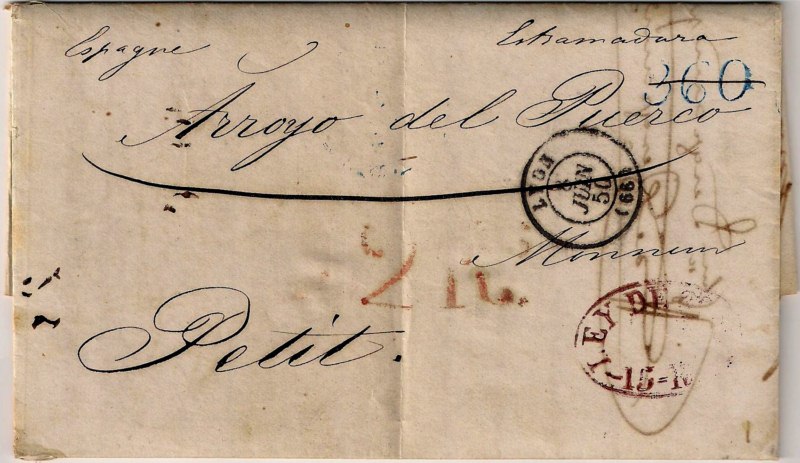 Espagne Estramadura
360
Arroyo del Puerco
LYON
JUIN
50
(668)
a Monsieur
2 R.
LEY DE
15=N
Petit.